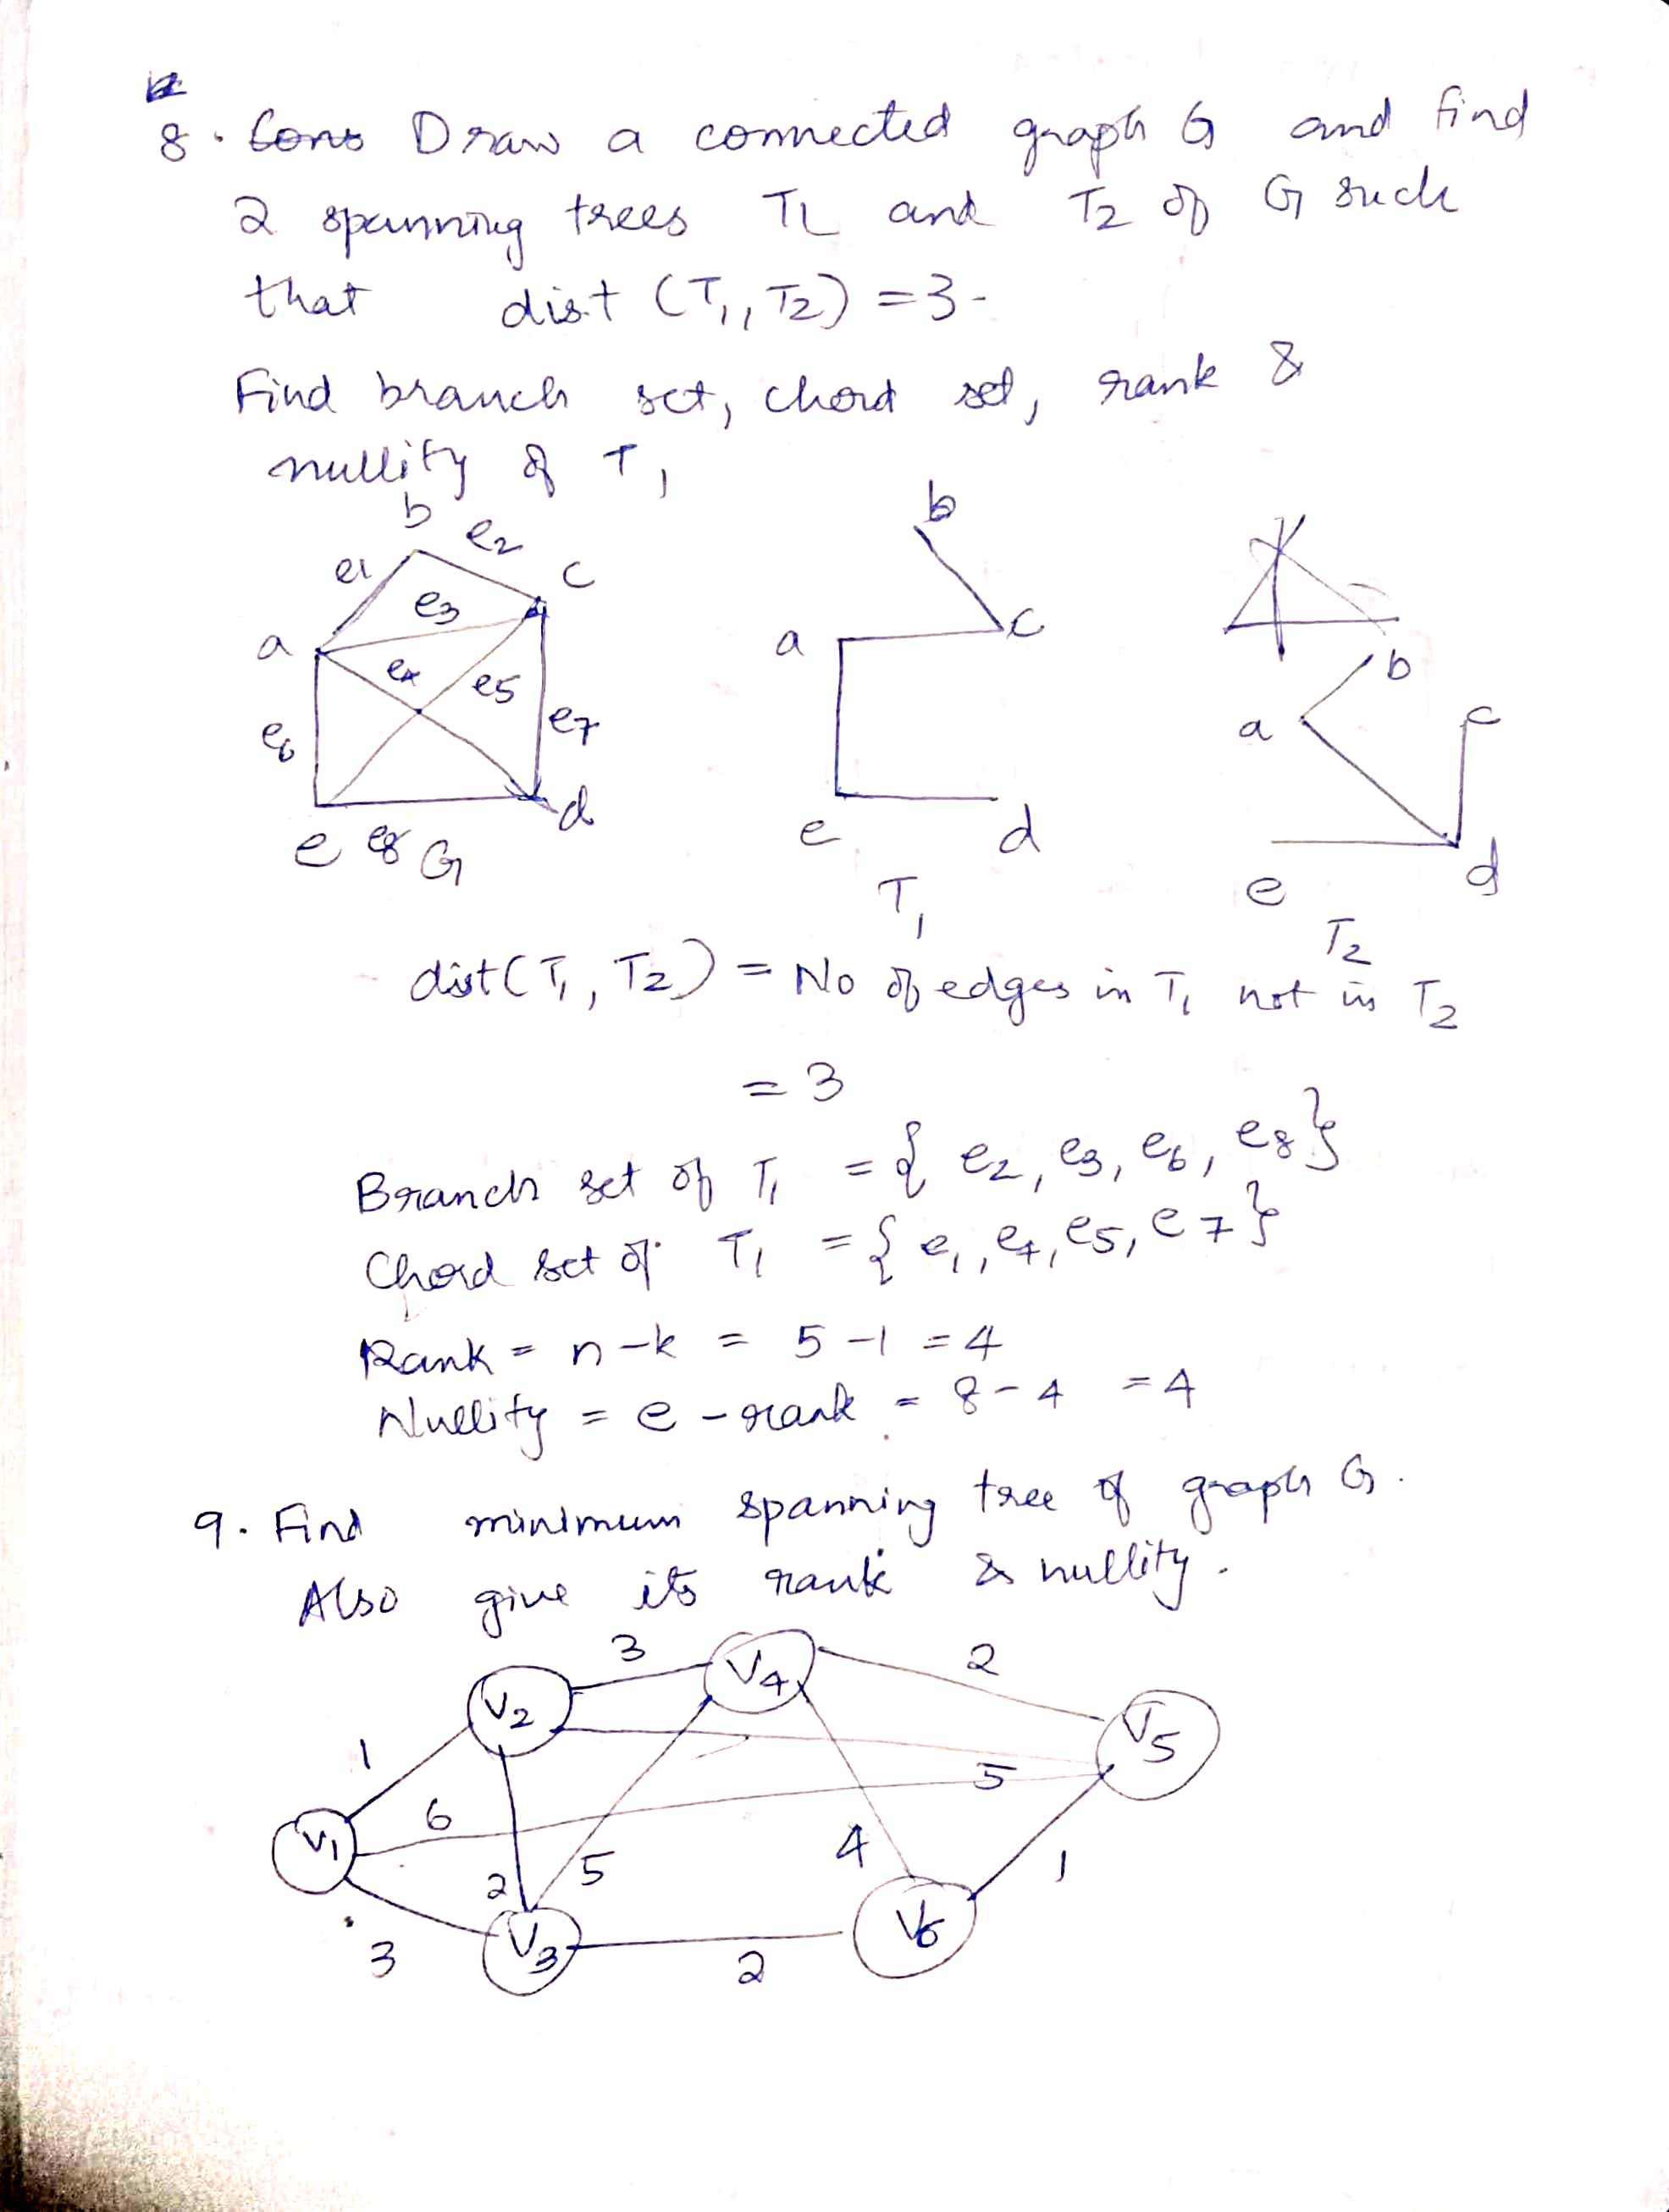 8. Cons Draw a connected graph G and find
2 spanning trees T1 and T2 of G such
that dist (T1, T2) = 3 -
Find branch set, chord set, rank &
nullity of T1
b e2
e1 c
e3
a
e4 e5
e6 e7
d
e e8 G
b
a c
e d
T1
b
a c
e d
T2
dist(T1, T2) = No of edges in T1 not in T2
= 3
Branch set of T1 = { e2, e3, e6, e8}
Chord set of T1 = { e1, e4, e5, e7}
Rank = n-k = 5-1 = 4
Nullity = e - rank = 8-4 = 4
9. Find minimum spanning tree of graph G.
Also give its rank & nullity.
3 V4 2
V2 V5
1 5
6
V1 4 1
2 5
V3 V6
3 2